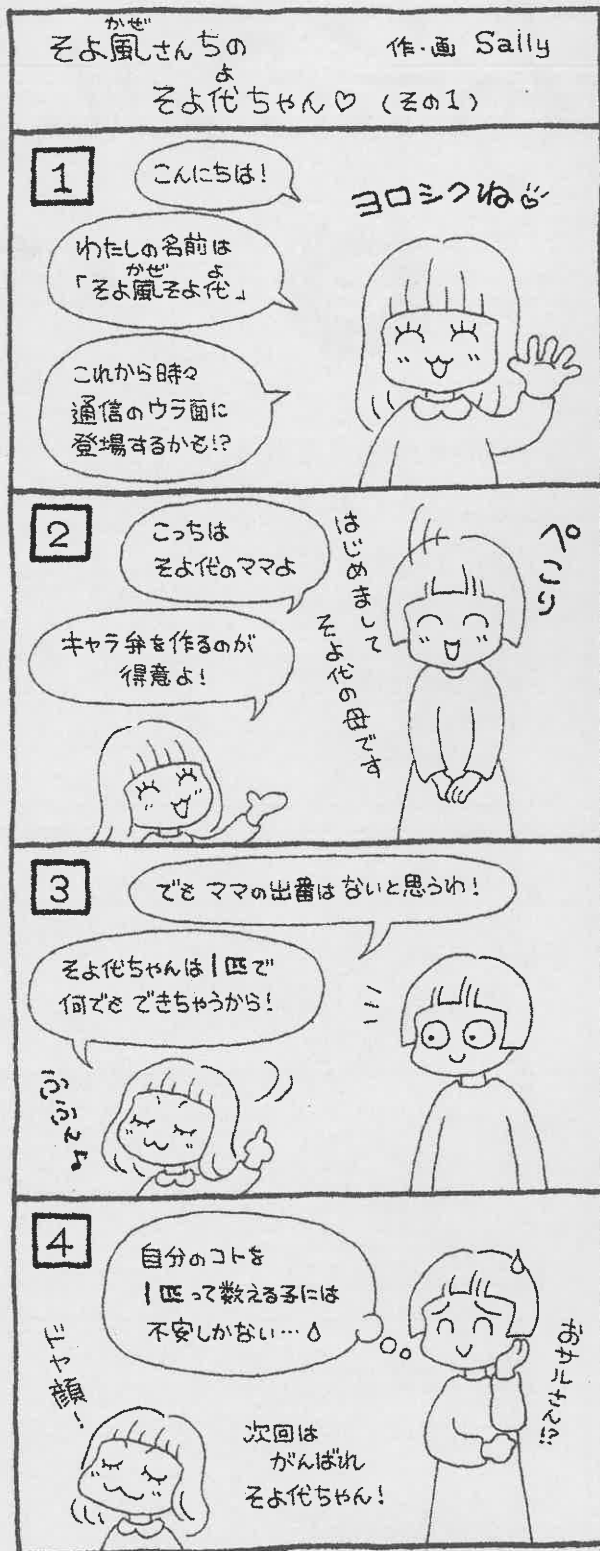 そよ風さんちの
かぜ
作・画 Sally
そよ代ちゃん♡（その1）
よ
1
こんにちは！
ヨロシクね♡
わたしの名前は
「そよ風そよ代」
かぜ よ
これから時々
通信のウラ面に
登場するかも!?
2
こっちは
そよ代のママよ
キャラ弁を作るのが
得意よ！
はじめまして
そよ代の母です
ぺこり
3
でも ママの出番は ないと思うわ！
そよ代ちゃんは1匹で
何でも できちゃうから！
4
自分のコトを
1匹って数える子には
不安しかない…
ドヤ顔〜
次回は
がんばれ
そよ代ちゃん！